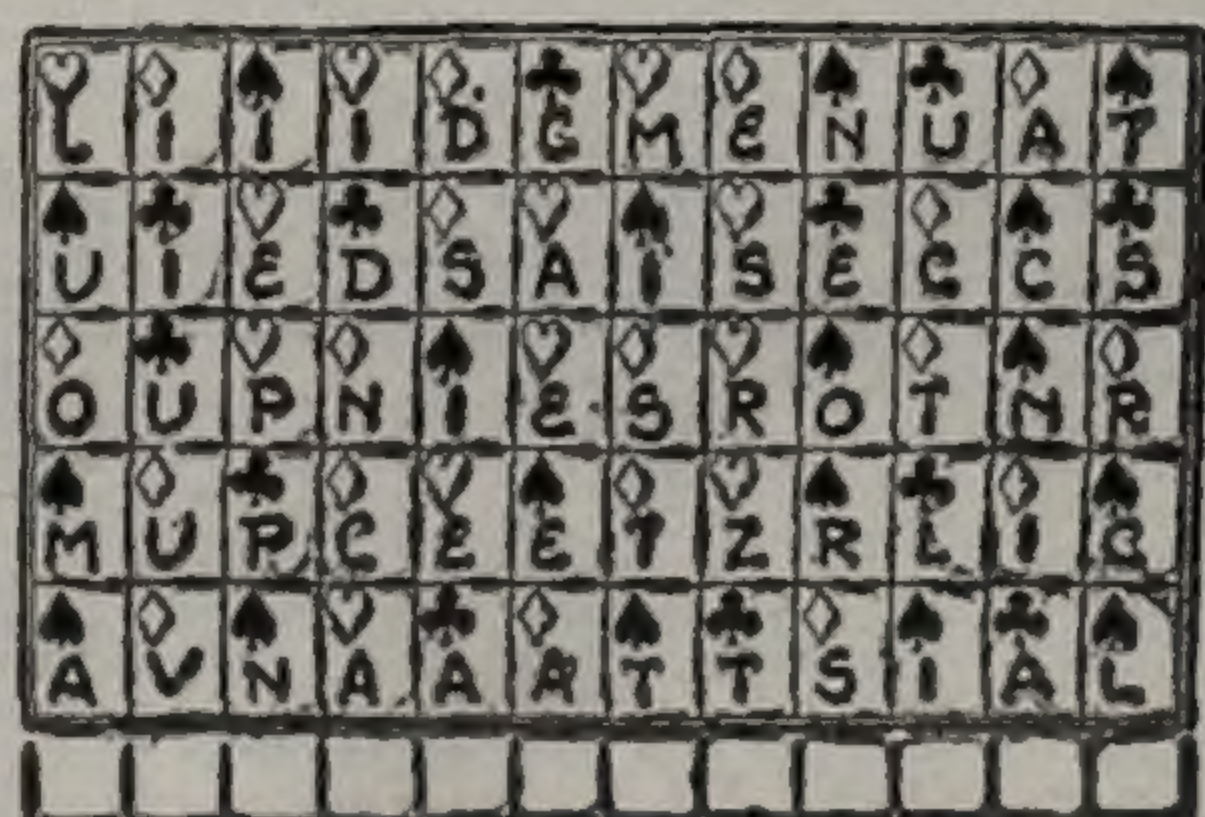 L I I I D G M E N U A T
U I E D S A I S E C C S
O U P N I E S R O T N R
M U P C E E T Z R L I Q
A V N A A A T T S I A L